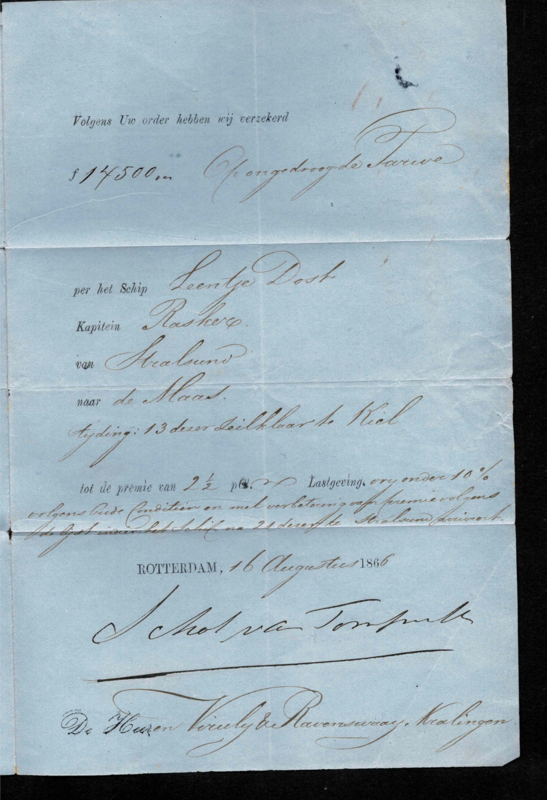 Volgens Uw order hebben wij verzekerd
ƒ 14500,„ Op ongedroogde Tarwe
per het Schip Leentje Dost
Kapitein Rasker
van Stralsund
naar de Maas.
tyding: 13 deser zeilklaar te Kiel
tot de premie van 2 1/2 pCt. Lastgeving, vry onder 10 %
volgens oude Condities en met verbetering van premie volgens
de lyst indien het schip na 21 deser te Stralsund arriveert.
ROTTERDAM, 16 Augustus 1866
Schot van
De Heeren Viruly & Ravenswaay, Kralingen